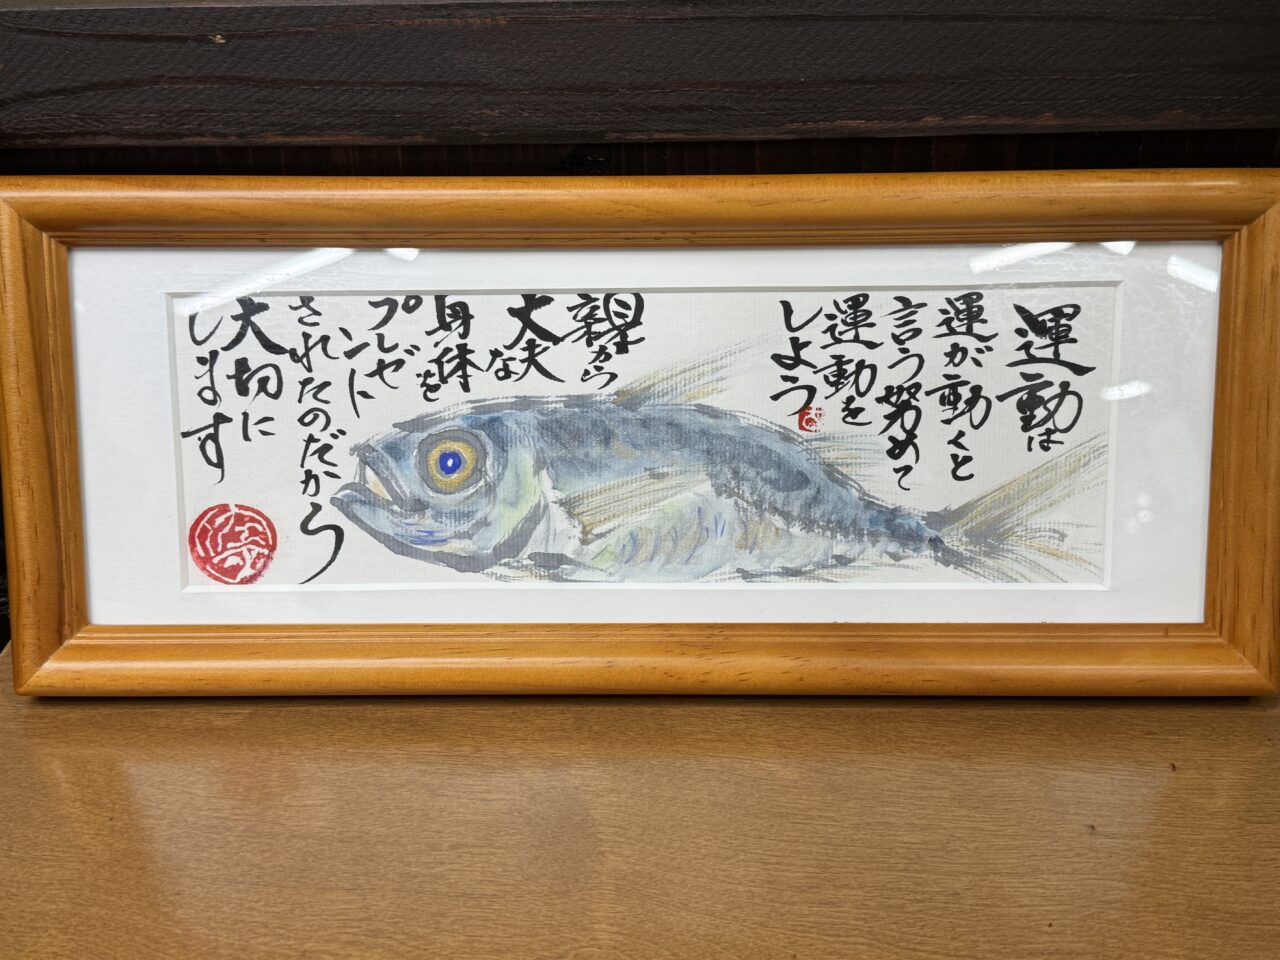 運動は
運が動くと
言う努めて
運動を
しよう
親から
大夫な
身体を
プレゼ
ント
されたのだから
大切に
します